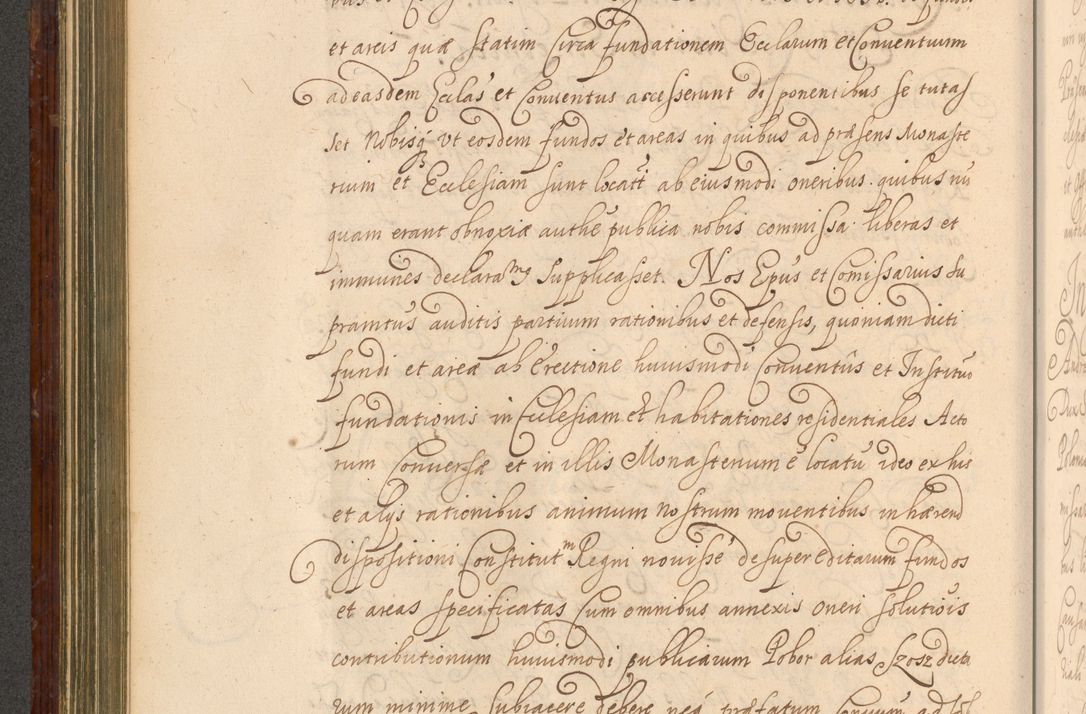 et areis quæ statim Circa fundationem Ecclarum et Conventuum
ad easdem Ecclas et Conventus accesserunt disponentibus se tutas
set Nobisq vt eosdem fundos et areas in quibus ad præsens Monaste
rium et Ecclesiam sunt locati ab eiusmodi oneribus quibus nu
quam erant obnoxiæ authe publica nobis commissa liberas et
immunes declaramg supplicasset. Nos Epus et Comissarius su
pramtus auditis partium rationibus et defensis, quoniam dicti
fundi et areæ ab Erectione huiusmodi Conventus et Institu
fundationis in Ecclesiam et habitationes residentiales Acto
rum Conversæ et in illis Monasterium e locatu ideo ex his
et alys rationibus animum nostrum moventibus inhærend
dispositioni Constitutm Regni novisse desuper editarum fundos
et areas specificatas Cum omnibus annexis oneri solutiois
contributionum huiusmodi publicarum Pobor alias Szosz dicta
rum minime subiacere debere neq præfatum